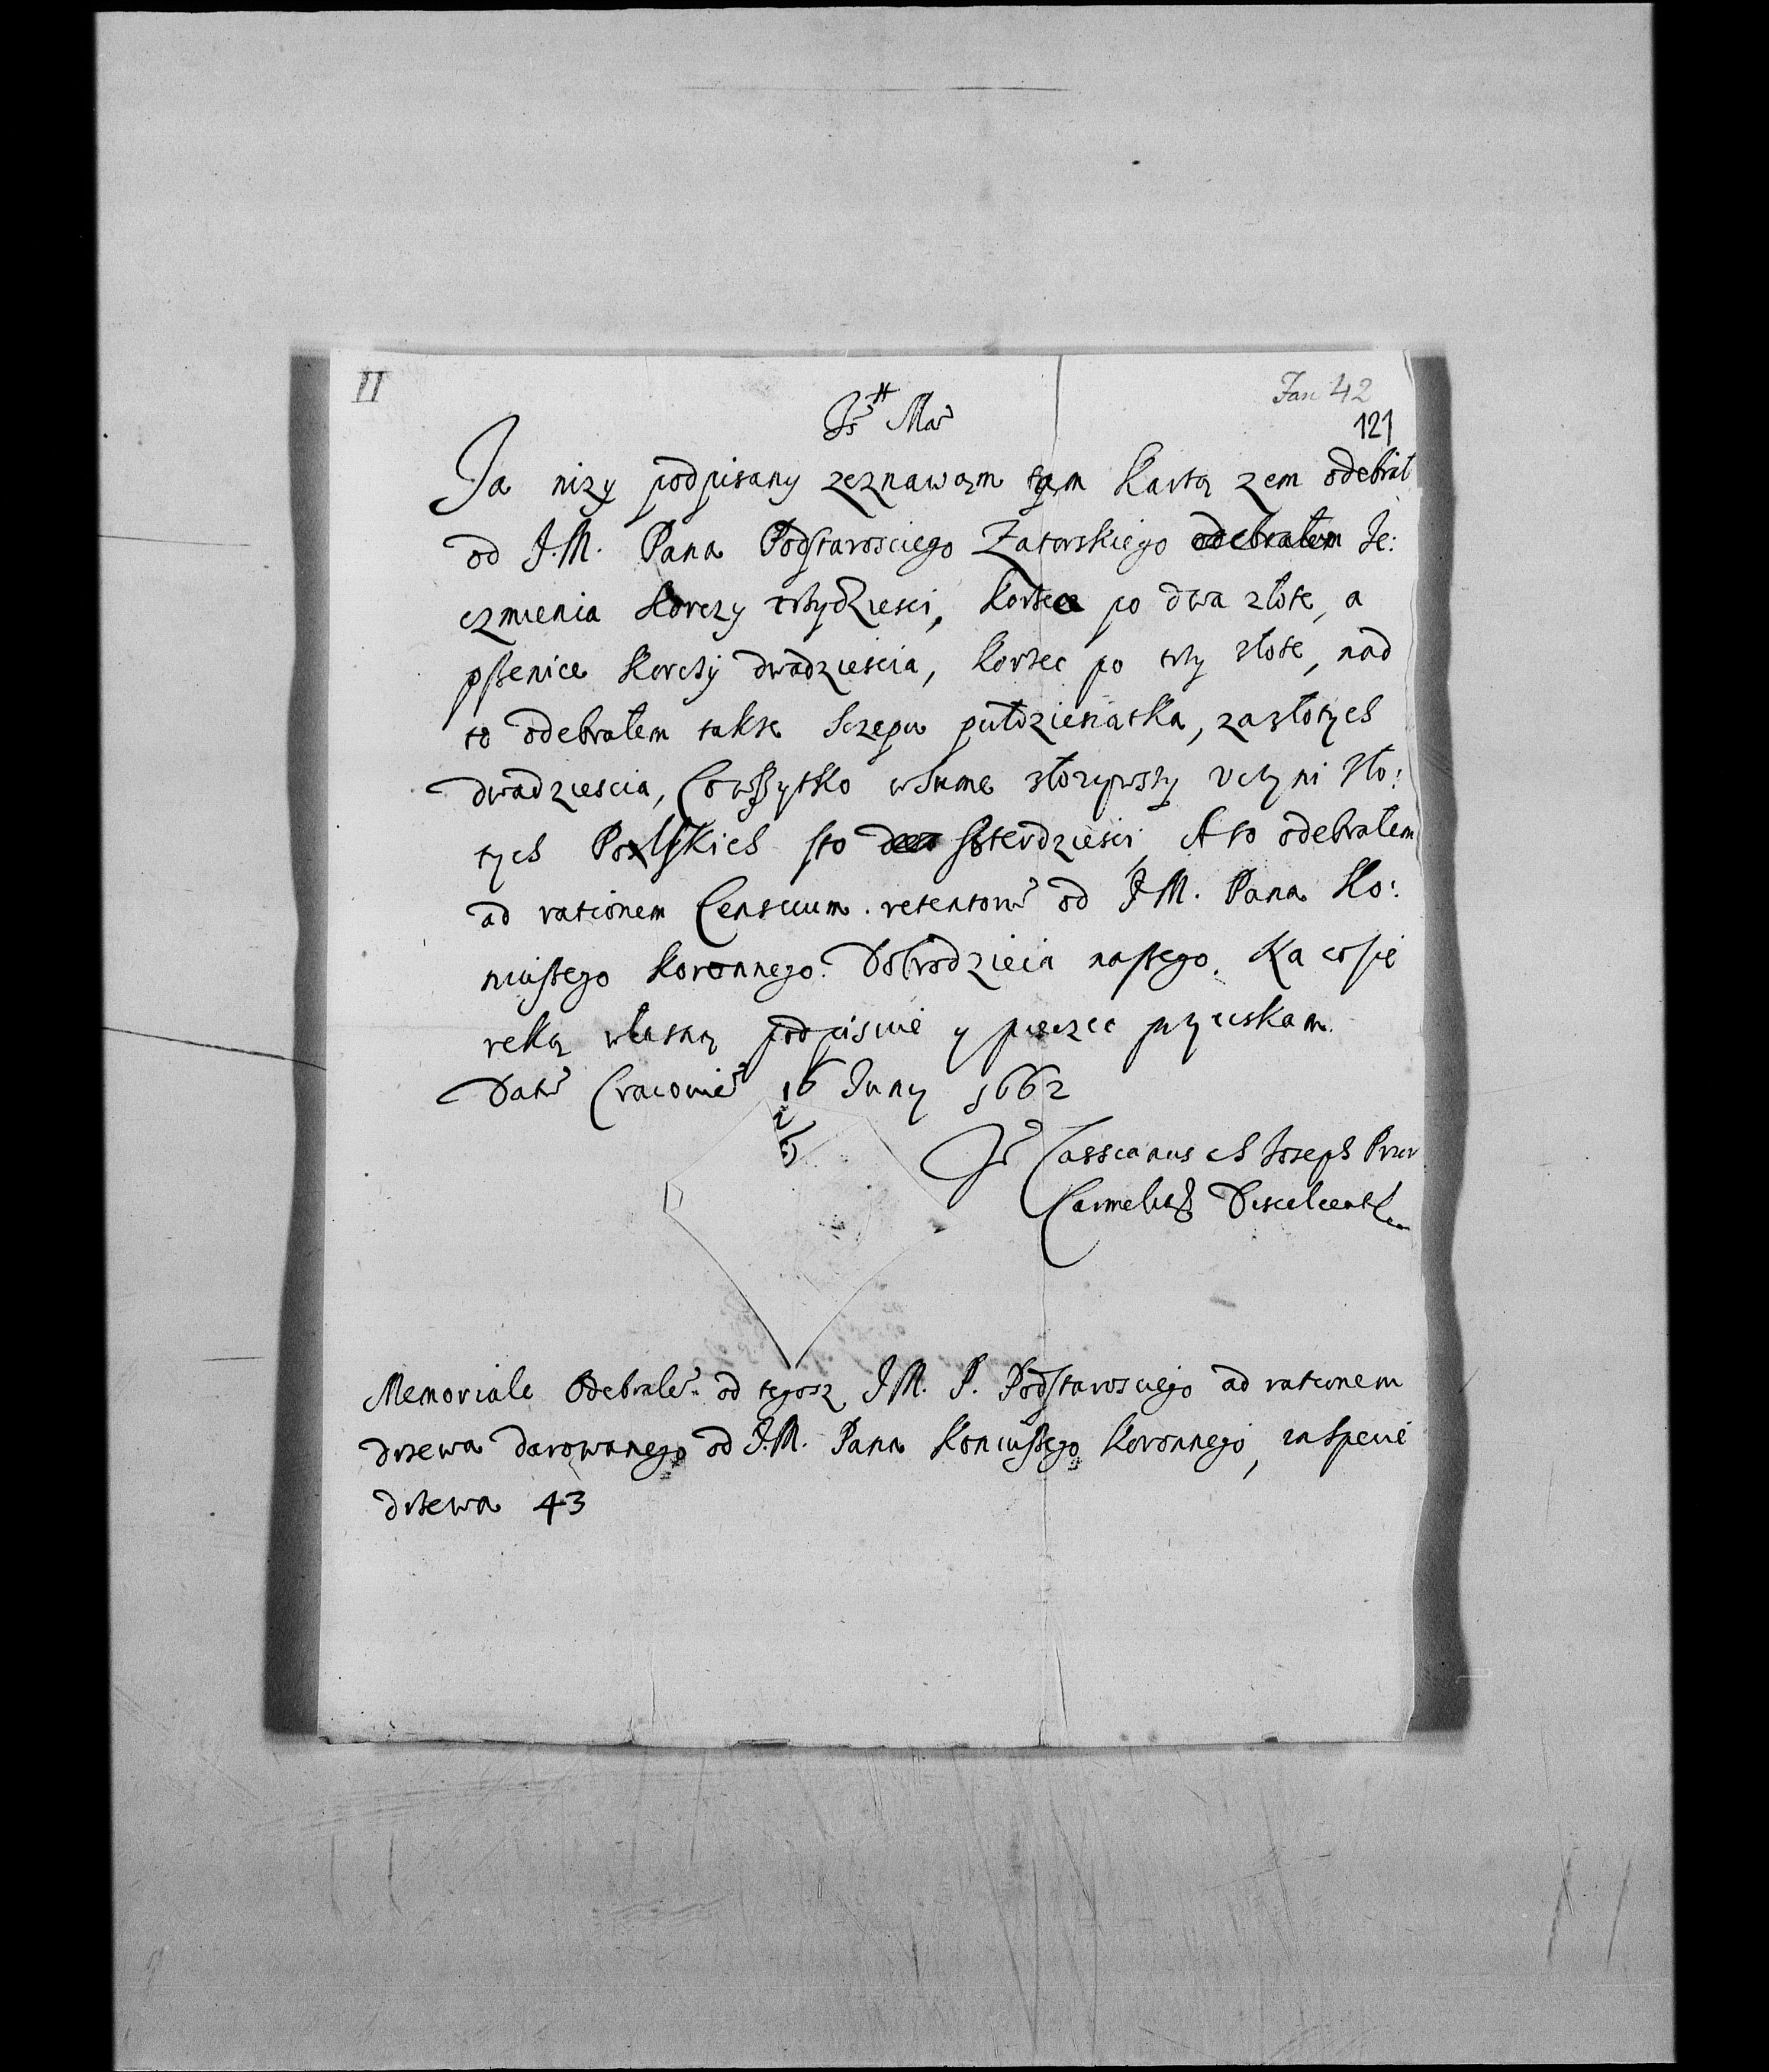 II
Fasc 42
121
Js Mar
Ja nizy podpisany zeznawam tą kartą zem odebrał
od J.M. Pana Podstarosciego Zatorskiego odebrałem Je:
czmienia korczy trzydziesci, korzec po dwa złote, a
pszenice korczy dwadziescia, korzec po trzy złote, nad
to odebrałem takze szczepu pułdziesiatka, za złotych
dwadziescia, Co wszytko w Sume złozywszy Vczyni Zło:
tych Polskich sto szterdziesci A to odebrałem
ad rationem Censuum retentorum od J.M. Pana Ko:
niuszego koronnego Dobrodzieia naszego. Na co się
ręką własną podpisuie y pieczec przyciskam.
Datum Cracoviae 16 Juny 1662
Fr Cassianus a S Joseph Prior
Carmelit Discalceat
Memoriale Odebrałem od tegosz J.M. P. Podstarosciego ad rationem
drzewa darowanego od J.M. Pana Koniuszego Koronnego, in specie
drzewa 43